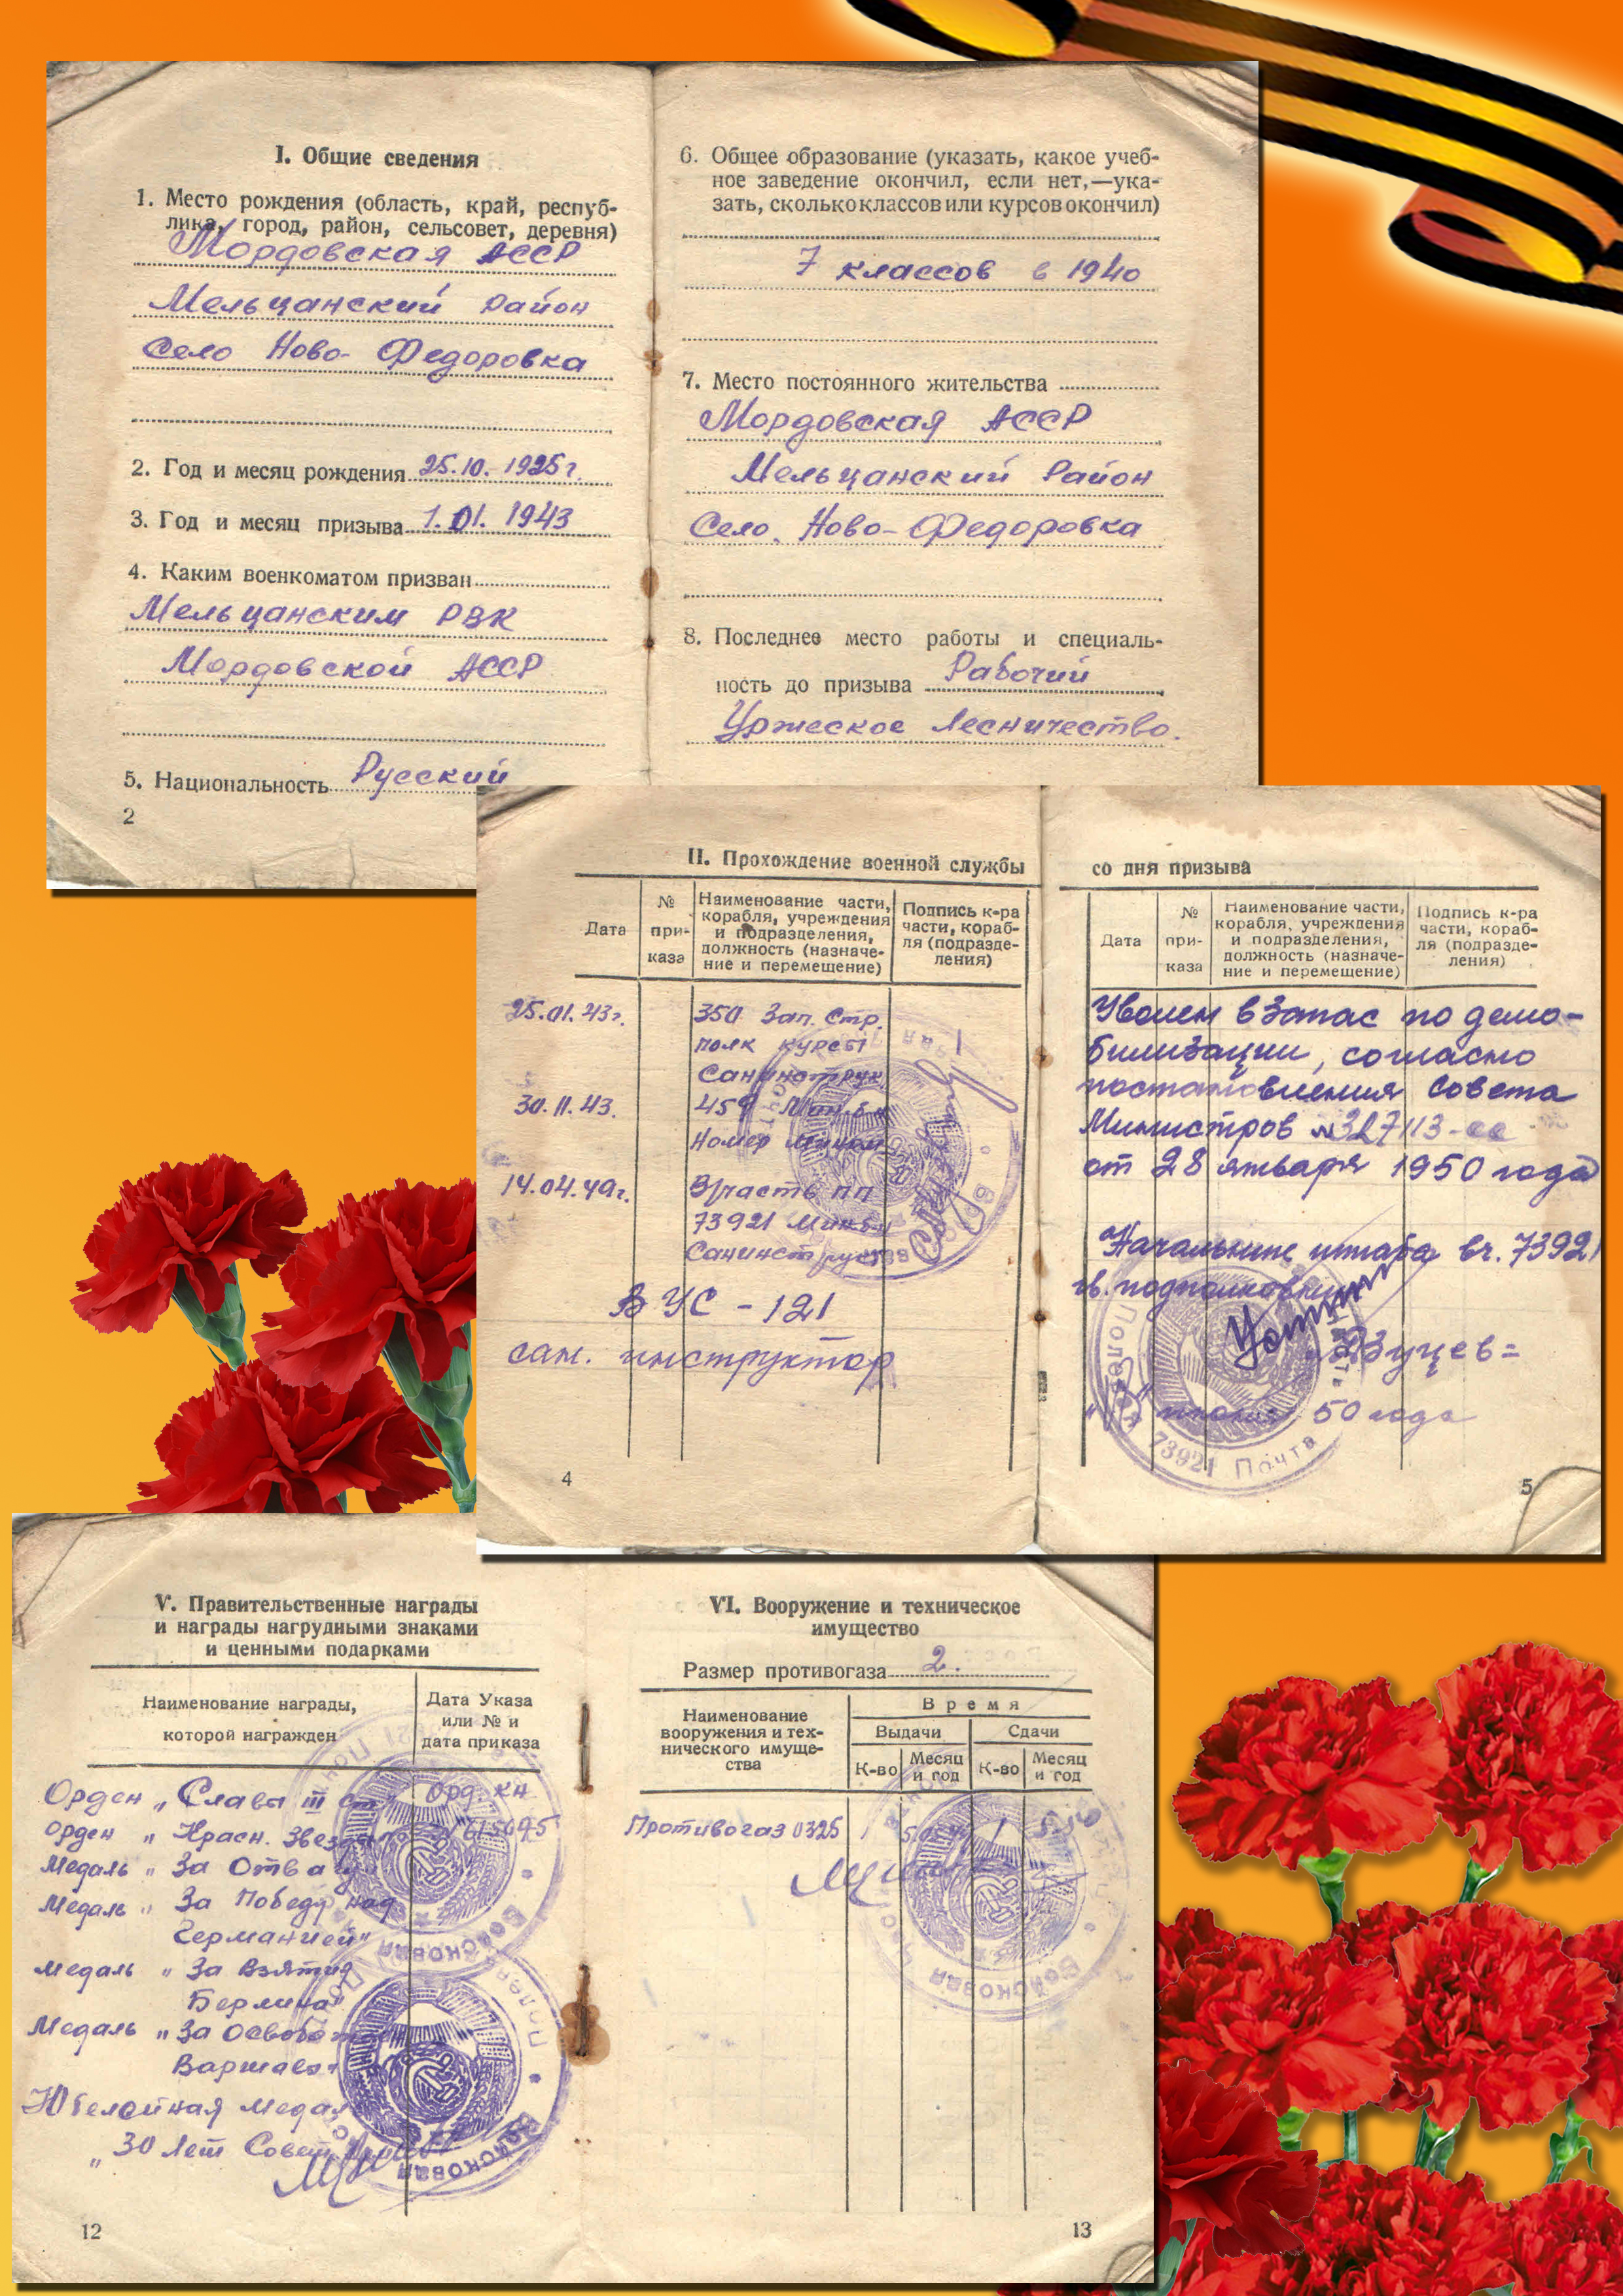 I. Общие сведения
1. Место рождения (область, край, респуб-
лика, город, район, сельсовет, деревня)
Мордовская АССР
Мельцанский район
Село Ново-Федоровка
2. Год и месяц рождения 25.10.1925 г.
3. Год и месяц призыва 1.01.1943
4. Каким военкоматом призван
Мельцанским РВК
Мордовской АССР
5. Национальность Русский
2
6. Общее образование (указать, какое учеб-
ное заведение окончил, если нет,—ука-
зать, сколько классов или курсов окончил)
7 классов в 1940
7. Место постоянного жительства
Мордовская АССР
Мельцанский Район
Село. Ново-Федоровка
8. Последнее место работы и специаль-
ность до призыва Рабочий
Уржеское Лесничество.
II. Прохождение военной службы
Дата
№
при-
каза
Наименование части,
корабля, учреждения
и подразделения,
должность (назначе-
ние и перемещение)
Подпись к-ра
части, кораб-
ля (подразде-
ления)
25.01.43г. 350 Зап. Стр.
полк курсы
Санинструк
30.11.43. 459 Мин.
Номер
14.04.49г. В/часть пп
73921
Санинструк
ВУС - 121
сан. инструктор
4
со дня призыва
Дата
№
при-
каза
Наименование части,
корабля, учреждения
и подразделения,
должность (назначе-
ние и перемещение)
Подпись к-ра
части, кораб-
ля (подразде-
ления)
Уволен в запас по демо-
билизации, согласно
постановления Совета
Министров
от 28 января 1950 года
Начальник штаба вч. 73921
гв. подполковник
50 года
73921 Почта
5
V. Правительственные награды
и награды нагрудными знаками
и ценными подарками
Наименование награды,
которой награжден
Дата Указа
или № и
дата приказа
Орден „Слава III ст" Орд. кн
Орден „Красн. Звезда
Медаль „За Отвагу
Медаль „За Победу над
Германией"
Медаль „За Взятие
Берлина"
Медаль „За Освобожден
Варшавы"
Юбилейная медаль
„30 лет Совет
Войсковая
12
VI. Вооружение и техническое
имущество
Размер противогаза 2.
Наименование
вооружения и тех-
нического имуще-
ства
Время
Выдачи
Сдачи
К-во
Месяц
и год
К-во
Месяц
и год
Противогаз 0325 1 1 5.50
Войсковая
13